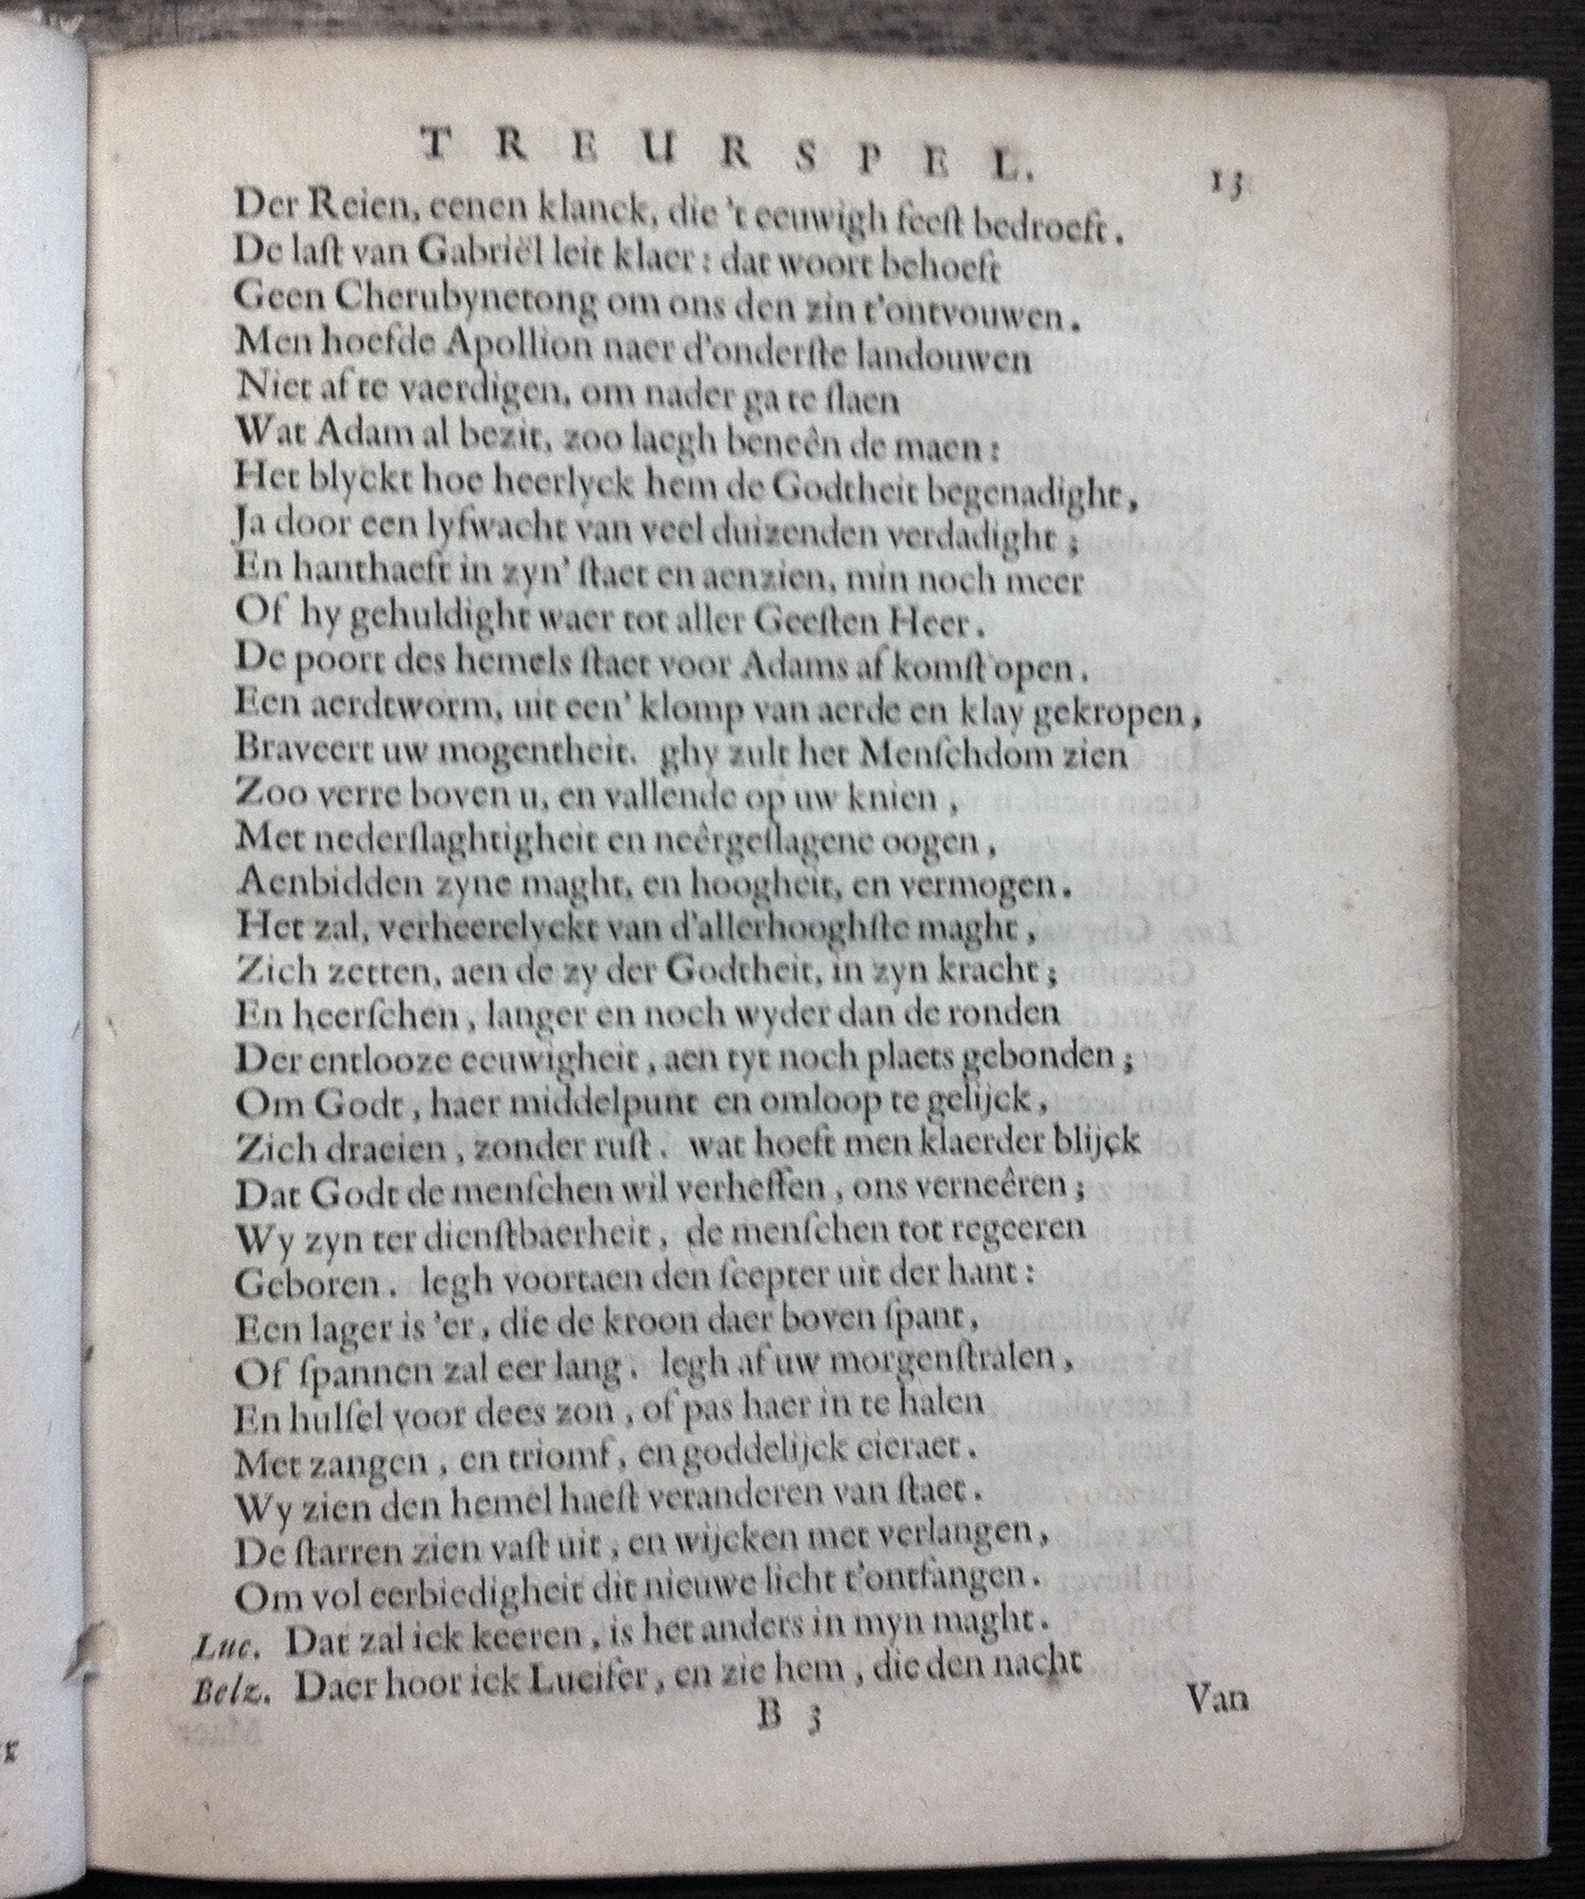 TREURSPEL. 13
Der Reien, eenen klanck, die 't eeuwigh feeſt bedroeft.
De laſt van Gabriël leit klaer: dat woort behoeft
Geen Cherubynetong om ons den zin t'ontvouwen.
Men hoefde Apollion naer d'onderſte landouwen
Niet af te vaerdigen, om nader ga te ſlaen
Wat Adam al bezit, zoo laegh beneên de maen:
Het blyckt hoe heerlyck hem de Godtheit begenadight,
Ja door een lyfwacht van veel duizenden verdadight;
En hanthaeft in zyn' ſtaet en aenzien, min noch meer
Of hy gehuldight waer tot aller Geeſten Heer.
De poort des hemels ſtaet voor Adams af komſt open.
Een aerdtworm, uit een' klomp van aerde en klay gekropen,
Braveert uw mogentheit. ghy zult het Menſchdom zien
Zoo verre boven u, en vallende op uw knien,
Met nederſlaghtigheit en neêrgeſlagene oogen,
Aenbidden zyne maght, en hoogheit, en vermogen.
Het zal, verheerelyckt van d'allerhooghſte maght,
Zich zetten, aen de zy der Godtheit, in zyn kracht;
En heerſchen, langer en noch wyder dan de ronden
Der entlooze eeuwigheit, aen tyt noch plaets gebonden;
Om Godt, haer middelpunt en omloop te gelijck,
Zich draeien, zonder ruſt. wat hoeft men klaerder blijck
Dat Godt de menſchen wil verheffen, ons verneêren;
Wy zyn ter dienſtbaerheit, de menſchen tot regeeren
Geboren. legh voortaen den ſcepter uit der hant:
Een lager is 'er, die de kroon daer boven ſpant,
Of ſpannen zal eer lang. legh af uw morgenſtralen,
En hulſel voor dees zon, of pas haer in te halen
Met zangen, en triomf, en goddelijck cieraet.
Wy zien den hemel haeſt veranderen van ſtaet.
De ſtarren zien vaſt uit, en wijcken met verlangen,
Om vol eerbiedigheit dit nieuwe licht t'ontfangen.
Luc. Dat zal ick keeren, is het anders in myn maght.
Belz. Daer hoor ick Lucifer, en zie hem, die den nacht
B 3 Van